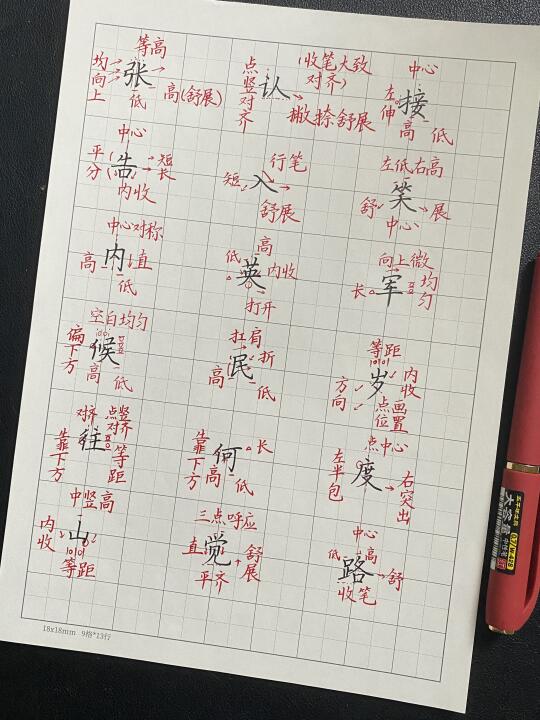 等高
均向上
张
低
高(舒展)
点竖对齐
(收笔大致对齐)
认
撇捺舒展
中心
左伸
接
高 低
中心
平分
告
短
长
内收
行笔
短
入
舒展
左低右高
舒
笑
展
中心
中心对称
高
内
直
低
高
低
英
内收
打开
向上微
长
军
均匀
空白均匀
偏下方
候
高 低
扛肩
民
折
高 低
等距
方向
岁
内收
点画位置
对齐
点竖对齐
往
靠下方
等距
靠下方
何
长
高 低
点中心
左半包
度
右突出
中竖高
内收
山
等距
三点呼应
直
觉
舒展
平齐
中心
低
高
路
舒
收笔
18x18mm 9格*13行
大容量
中性笔